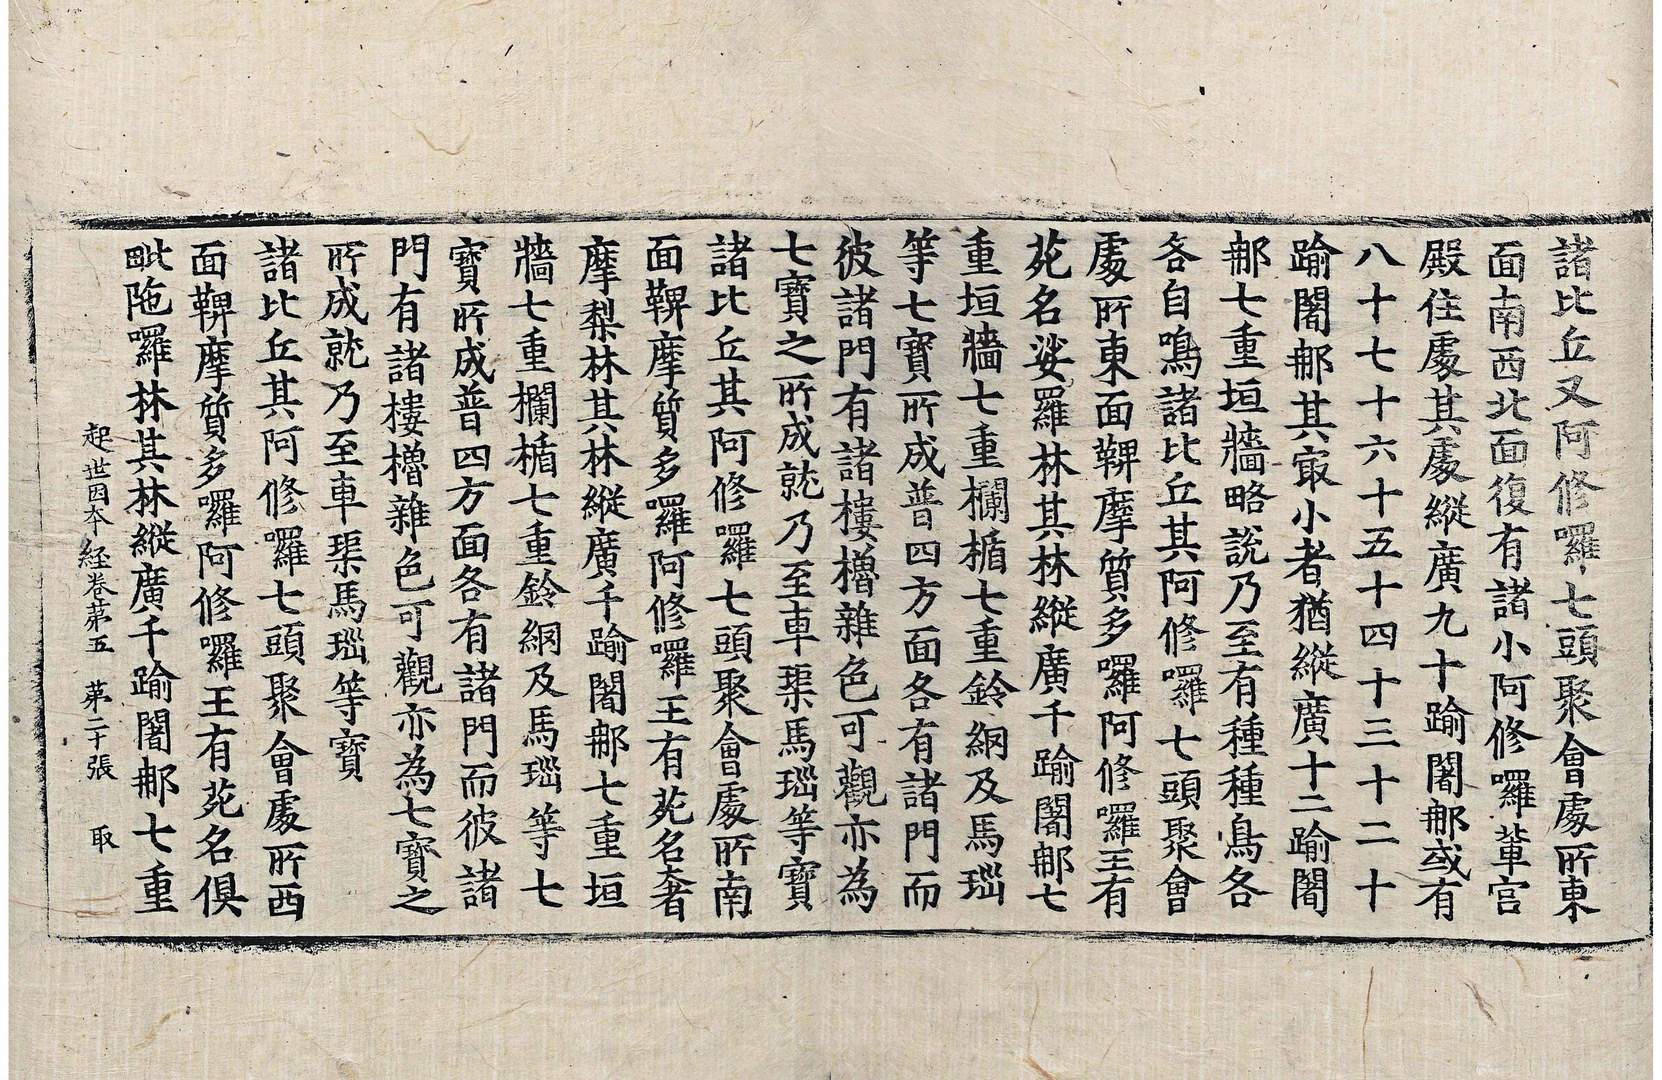 諸比丘又阿修囉七頭聚會處所東
面南西北面復有諸小阿修囉輩宮
殿住處其處縱廣九十踰闍那或有
八十七十六十五十四十三十二十
踰闍那其冣小者猶縱廣十二踰闍
那七重垣牆略說乃至有種種鳥各
各自鳴諸比丘其阿修囉七頭聚會
處所東面鞞摩質多囉阿修囉王有
苑名娑羅林其林縱廣千踰闍那七
重垣牆七重欄楯七重鈴網及馬瑙
等七寶所成普四方面各有諸門而
彼諸門有諸樓櫓雜色可觀亦為
七寶之所成就乃至車𤦲馬瑙等寶
諸比丘其阿修囉七頭聚會處所南
面鞞摩質多囉阿修囉王有苑名奢
摩梨林其林縱廣千踰闍那七重垣
牆七重欄楯七重鈴網及馬瑙等七
寶所成普四方面各有諸門而彼諸
門有諸樓櫓雜色可觀亦為七寶之
所成就乃至車𤦲馬瑙等寶
諸比丘其阿修囉七頭聚會處所西
面鞞摩質多囉阿修囉王有苑名俱
毗陁囉林其林縱廣千踰闍那七重
起世因本經卷第五 第二十張 取